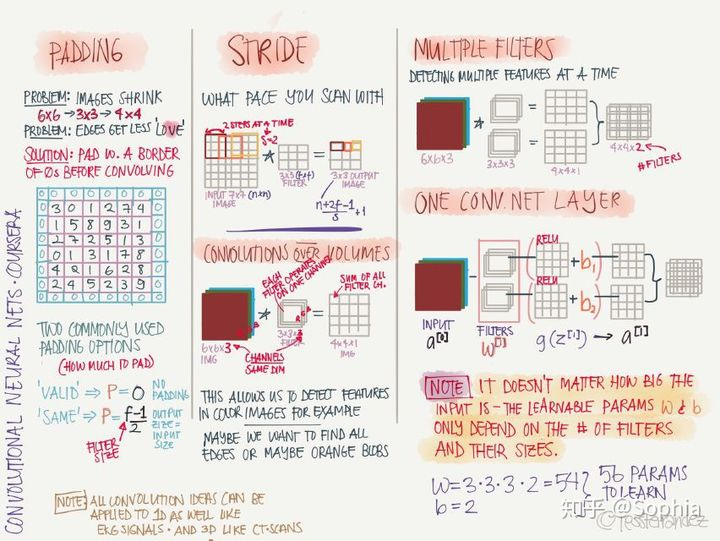 CONVOLUTIONAL NEURAL NETS · COURSERA
PADDING
PROBLEM: IMAGES SHRINK
6x6 → 3x3 → 4x4
PROBLEM: EDGES GET LESS 'LOVE'
SOLUTION: PAD W. A BORDER
OF 0s BEFORE CONVOLVING
0 0 0 0 0 0 0 0
0 3 0 1 2 7 4 0
0 1 5 8 9 3 1 0
0 2 7 2 5 1 3 0
0 0 1 3 1 7 8 0
0 4 2 1 6 2 8 0
0 2 4 5 2 3 9 0
0 0 0 0 0 0 0 0
TWO COMMONLY USED
PADDING OPTIONS
(HOW MUCH TO PAD)
'VALID' ⇒ P = 0 NO PADDING
'SAME' ⇒ P = f-1/2 OUTPUT SIZE = INPUT SIZE
FILTER SIZE
NOTE: ALL CONVOLUTION IDEAS CAN BE
APPLIED TO 1D AS WELL LIKE
EKG SIGNALS · AND 3D LIKE CT-SCANS
STRIDE
WHAT PACE YOU SCAN WITH
2 STEPS AT A TIME
S=2
INPUT 7x7 (n×n)
IMAGE
3x3 (f×f)
FILTER
3x3 OUTPUT
IMAGE
n+2f-1/S +1
CONVOLUTIONS OVER VOLUMES
EACH
FILTER OPERATES
ON ONE CHANNEL
SUM OF ALL
FILTER CH.
R G B
6x6x3
IMG
3x3x3
FILTER
4x4x1
IMG
CHANNELS
SAME DIM
THIS ALLOWS US TO DETECT FEATURES
IN COLOR IMAGES FOR EXAMPLE
MAYBE WE WANT TO FIND ALL
EDGES OR MAYBE ORANGE BLOBS
MULTIPLE FILTERS
DETECTING MULTIPLE FEATURES AT A TIME
6x6x3
3x3x3
4x4x1
4x4x2
#FILTERS
ONE CONV. NET LAYER
RELU
+ b₁
RELU
+ b₂
INPUT
a[0]
FILTERS
W[1]
g(z[1]) → a[1]
NOTE IT DOESN'T MATTER HOW BIG THE
INPUT IS - THE LEARNABLE PARAMS W & b
ONLY DEPEND ON THE # OF FILTERS
AND THEIR SIZES.
W = 3·3·3·2 = 54 } 56 PARAMS
b = 2 TO LEARN
知乎 @Sophia
@TessFerrandez